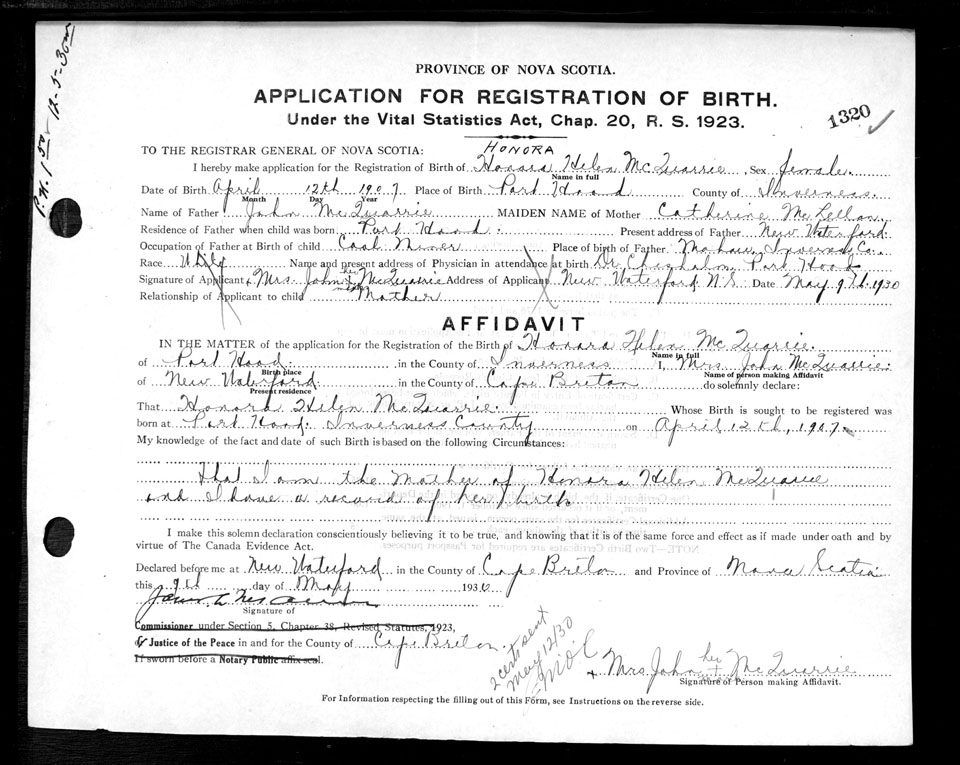 P.H. 1.50 12-5-30
PROVINCE OF NOVA SCOTIA.
APPLICATION FOR REGISTRATION OF BIRTH.
Under the Vital Statistics Act, Chap. 20, R. S. 1923.
1320
HONORA
TO THE REGISTRAR GENERAL OF NOVA SCOTIA:
I hereby make application for the Registration of Birth of Honora Helen McQuarrie Sex female.
Name in full
Date of Birth April 12th 1907. Place of Birth Port Hood County of Inverness.
Month Day Year
Name of Father John McQuarrie MAIDEN NAME of Mother Catherine McLellan
Residence of Father when child was born Port Hood. Present address of Father New Waterford.
Occupation of Father at Birth of child Coal Miner Place of birth of Father Mabou, Inverness Co.
Race Name and present address of Physician in attendance at birth Dr Port Hood
Signature of Applicant Mrs. John her McQuarrie Address of Applicant New Waterford N.S. Date May 9th 1930
mark
Relationship of Applicant to child Mother
AFFIDAVIT
IN THE MATTER of the application for the Registration of the Birth of Honora Helen McQuarrie.
Name in full
of Port Hood. in the County of Inverness I, Mrs. John McQuarrie
Birth place Name of person making Affidavit
of New Waterford in the County of Cape Breton do solemnly declare:
Present residence
That Honora Helen McQuarrie. Whose Birth is sought to be registered was
born at Port Hood. Inverness County on April 12th, 1907.
My knowledge of the fact and date of such Birth is based on the following Circumstances:
that I am the Mother of Honora Helen McQuarrie
and I have a record of her birth
I make this solemn declaration conscientiously believing it to be true, and knowing that it is of the same force and effect as if made under oath and by
virtue of The Canada Evidence Act.
Declared before me at New Waterford in the County of Cape Breton and Province of Nova Scotia
this 9th day of May 1930
Signature of
Commissioner under Section 5, Chapter 38, Revised Statutes, 1923,
or Justice of the Peace in and for the County of Cape Breton.
If sworn before a Notary Public affix seal.
2 cert sent
May 12/30
Mrs John her McQuarrie
mark
Signature of Person making Affidavit.
For Information respecting the filling out of this Form, see Instructions on the reverse side.